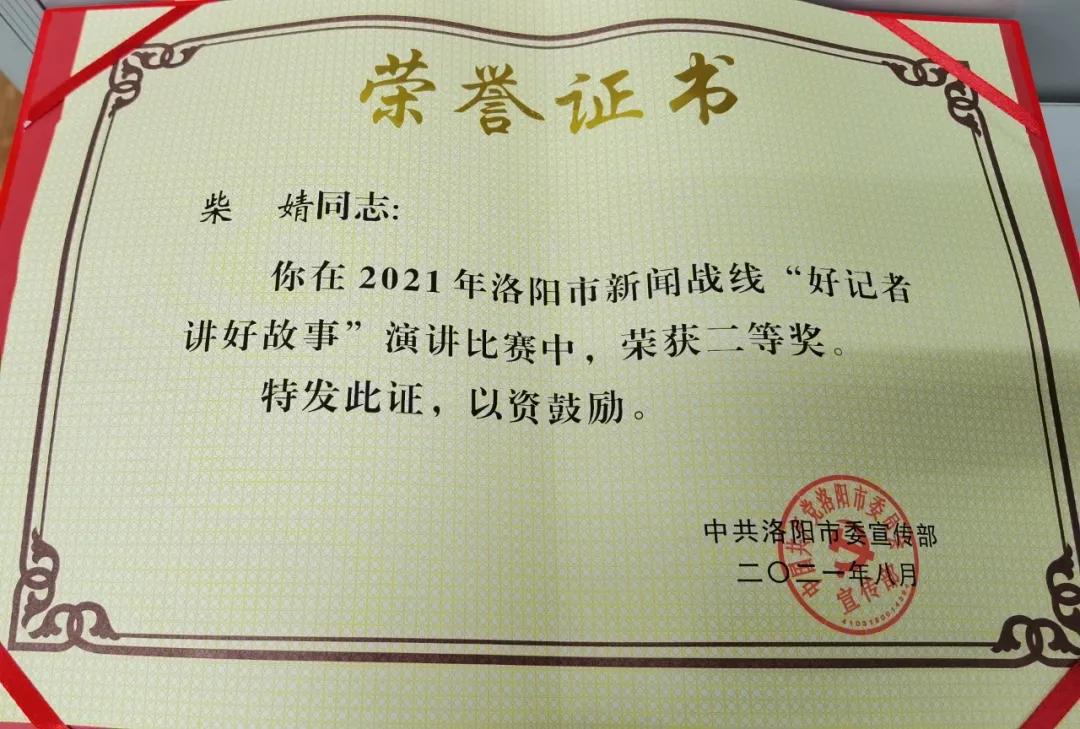 荣誉证书
柴 婧同志:
你在2021年洛阳市新闻战线“好记者
讲好故事”演讲比赛中，荣获二等奖。
特发此证，以资鼓励。
中共洛阳市委宣传部
二〇二一年八月
中国共产党洛阳市委员会
宣传部